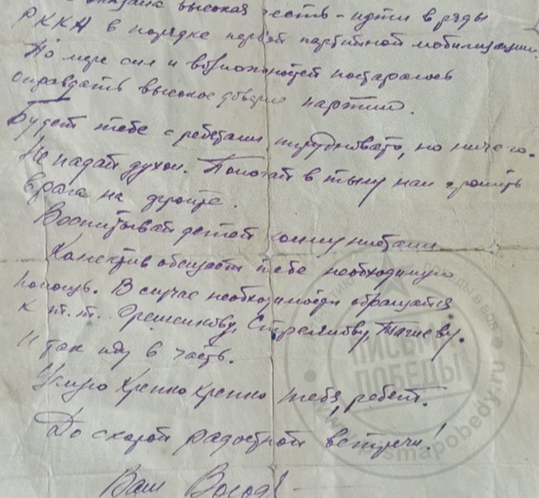 оказана высокая честь – идти в ряды
РККА в порядке первой партийной мобилизации.
По мере сил и возможностей постараюсь
оправдать высокое доверие партии.
Будет тебе с ребятами трудновато, но ничего.
Не падай духом. Помогай в тылу нам громить
врага на фронте.
Воспитывай детей коммунистами.
обещает тебе необходимую
помощь. В случае необходимости обращайся
к т.т.
Итак иду в часть.
Целую крепко крепко тебя, ребят.
До скорой радостной встречи!
Ваш Володя
ПИСЬМА
ПОБЕДЫ
pismapobedy.ru